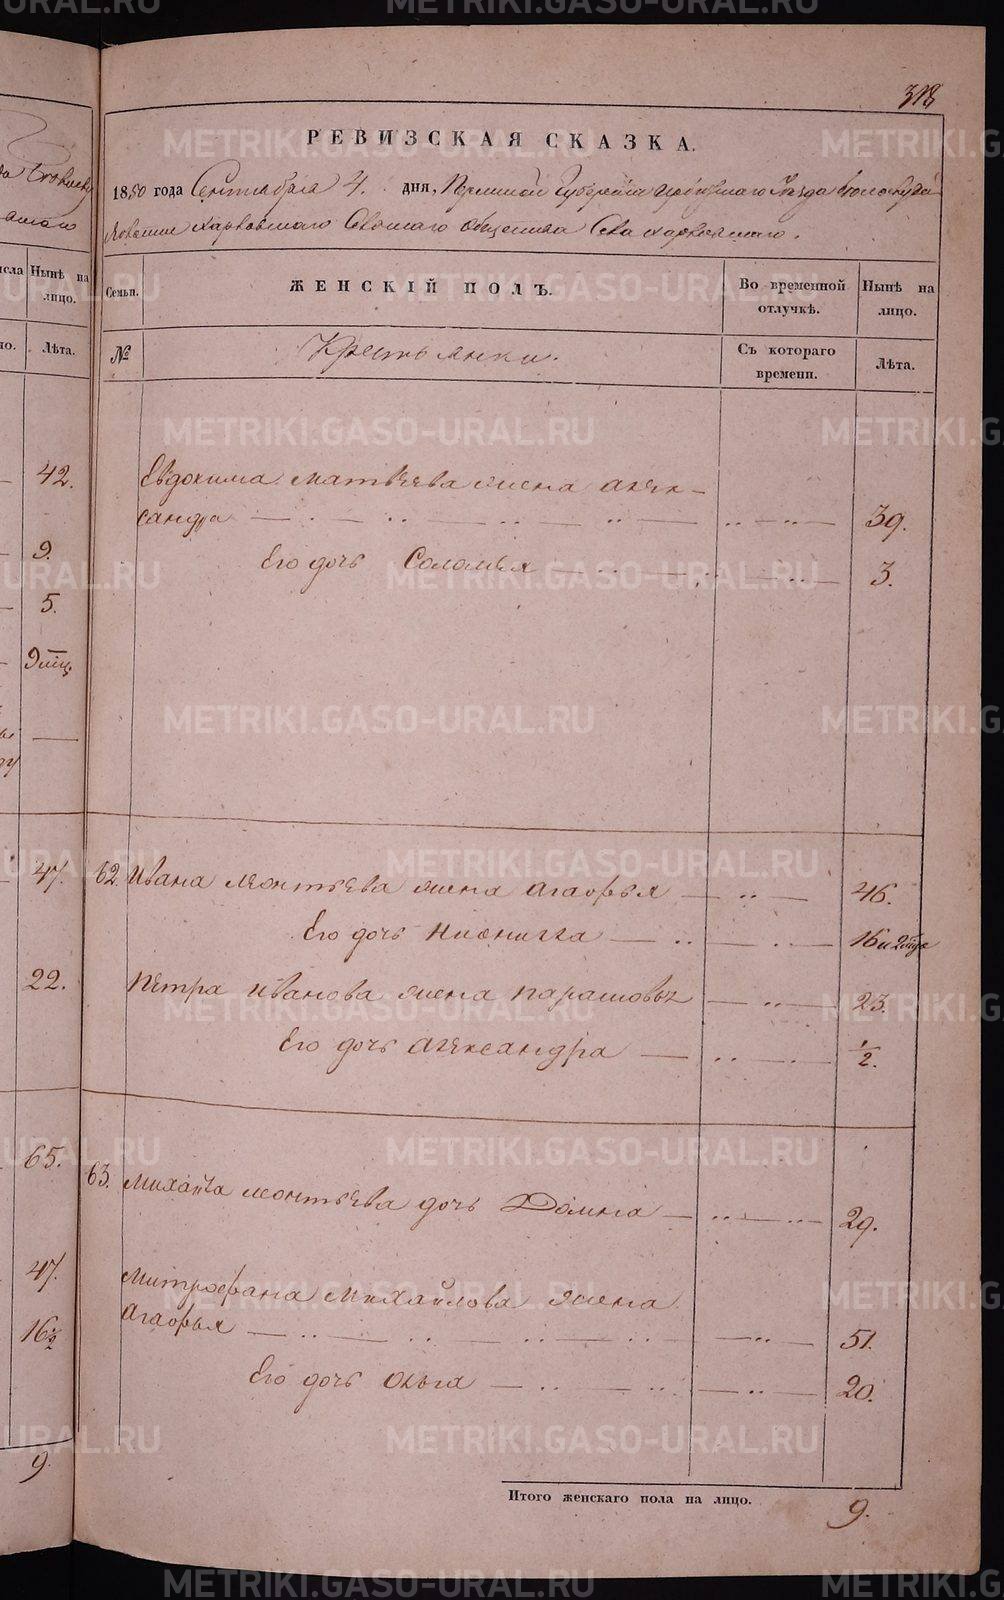 318
РЕВИЗСКАЯ СКАЗКА.
1850 года Сентября 4. дня, Пермской Губернии Ирбитскаго Уезда
Харловскаго Сельскаго Общества Села Харловскаго.
Семьи.
ЖЕНСКІЙ ПОЛЪ.
Во временной отлучкѣ.
Нынѣ на лицо.
№
Крестьянки.
Съ котораго времени.
Лѣта.
Нынѣ на лицо.
Лѣта.
42.
Евдокима Матвѣева жена Алек-
сандра 39.
9.
Его дочь Соломея 3.
5.
9 мѣц.
47.
62. Ивана Леонтьева жена Агафья 46.
Его дочь 16 и
22.
Петра Иванова жена Парасковья 23.
Его дочь Александра 1/2.
65.
63. Михайла Леонтьева дочь Домна 29.
47.
Митрофана Михайлова жена
Агафья 51.
16 1/2
Его дочь Ольга 20.
9.
Итого женскаго пола на лицо.
9.
METRIKI.GASO-URAL.RU